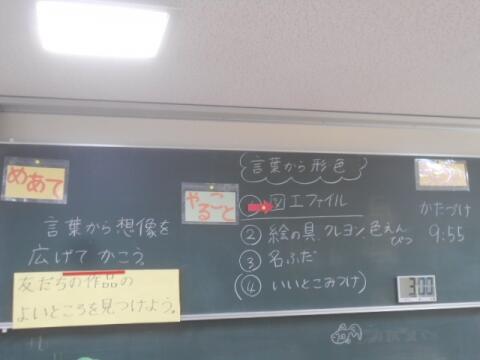 めあて
言葉から想像を
広げてかこう。
友だちの作品の
よいところを見つけよう。
やること
言葉から形色
図工ファイル
② 絵の具、クレヨン色えんぴつ
③ 名ふだ
④ いいとこみつけ
かたづけ
9:55
3:00